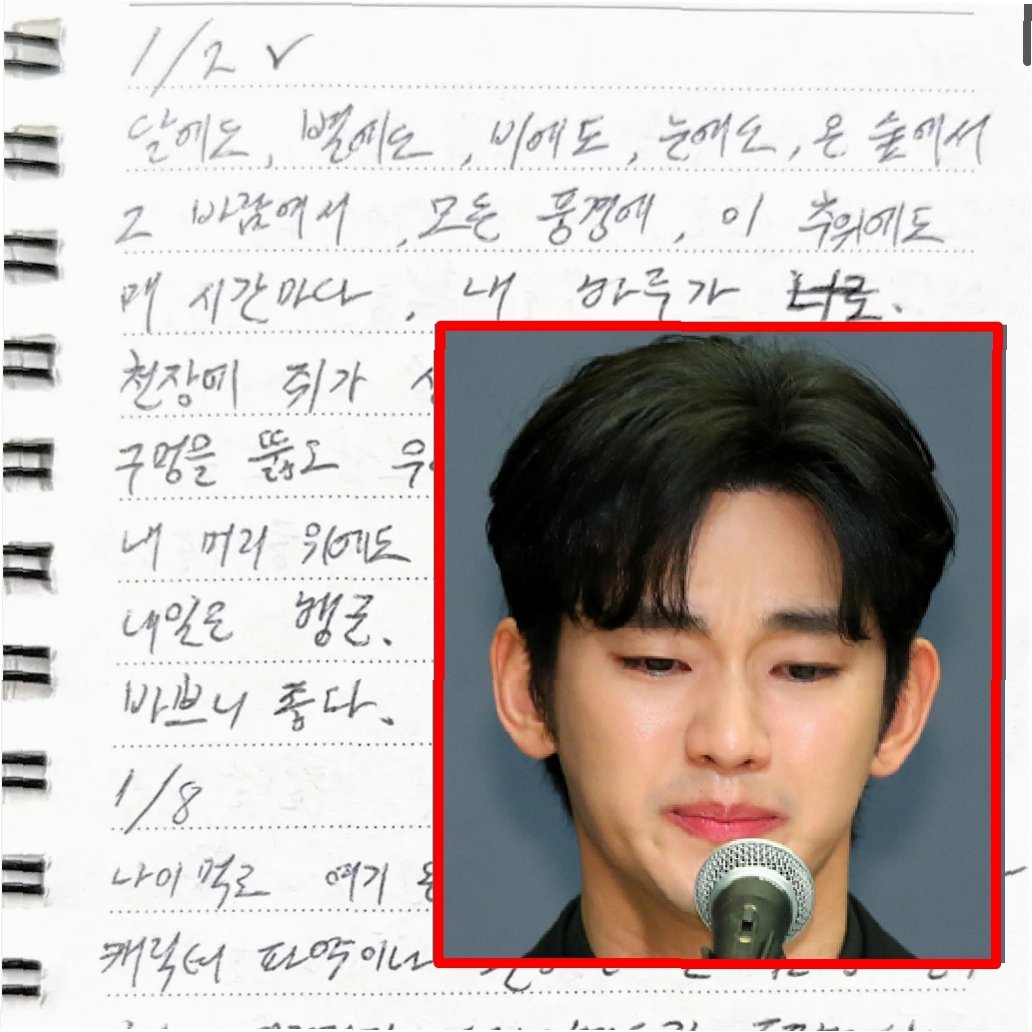 1/2 ✓
달에도, 별에도, 비에도, 눈에도, 온 숲에서
그 바람에서, 모든 풍경에, 이 추위에도
매 시간마다, 내 하루가 너로.
천장에 쥐가
구멍을 뚫도
내 머리 위에도
내일은 행군.
바쁘니 좋다.
1/8
나이 먹고 여기
캐릭터 파악이나